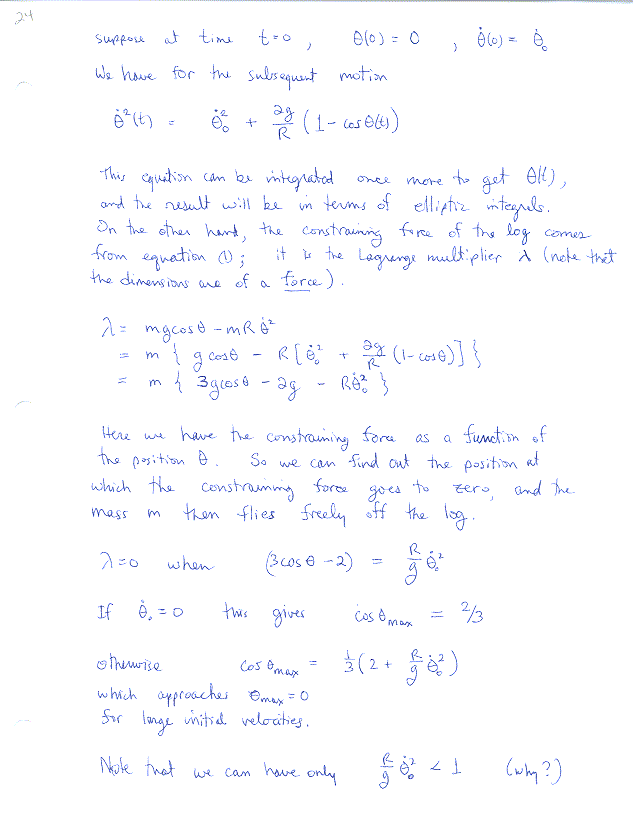 24
suppose at time t=0 , θ(0) = 0 , θ̇(0) = θ̇₀
We have for the subsequent motion
θ̇²(t) = θ̇₀² + 2g/R (1 - cos θ(t))
This equation can be integrated once more to get θ(t),
and the result will be in terms of elliptic integrals.
On the other hand, the constraining force of the log comes
from equation ①; it is the Lagrange multiplier λ (note that
the dimensions are of a force).
λ = mg cos θ - mR θ̇²
= m { g cos θ - R [ θ̇₀² + 2g/R (1 - cos θ) ] }
= m { 3g cos θ - 2g - R θ̇₀² }
Here we have the constraining force as a function of
the position θ. So we can find out the position at
which the constraining force goes to zero, and the
mass m then flies freely off the log.
λ = 0 when (3 cos θ - 2) = R/g θ̇₀²
If θ̇₀ = 0 this gives cos θmax = 2/3
otherwise cos θmax = 1/3 (2 + R/g θ̇₀²)
which approaches θmax = 0
for large initial velocities.
Note that we can have only R/g θ̇₀² < 1 (why?)